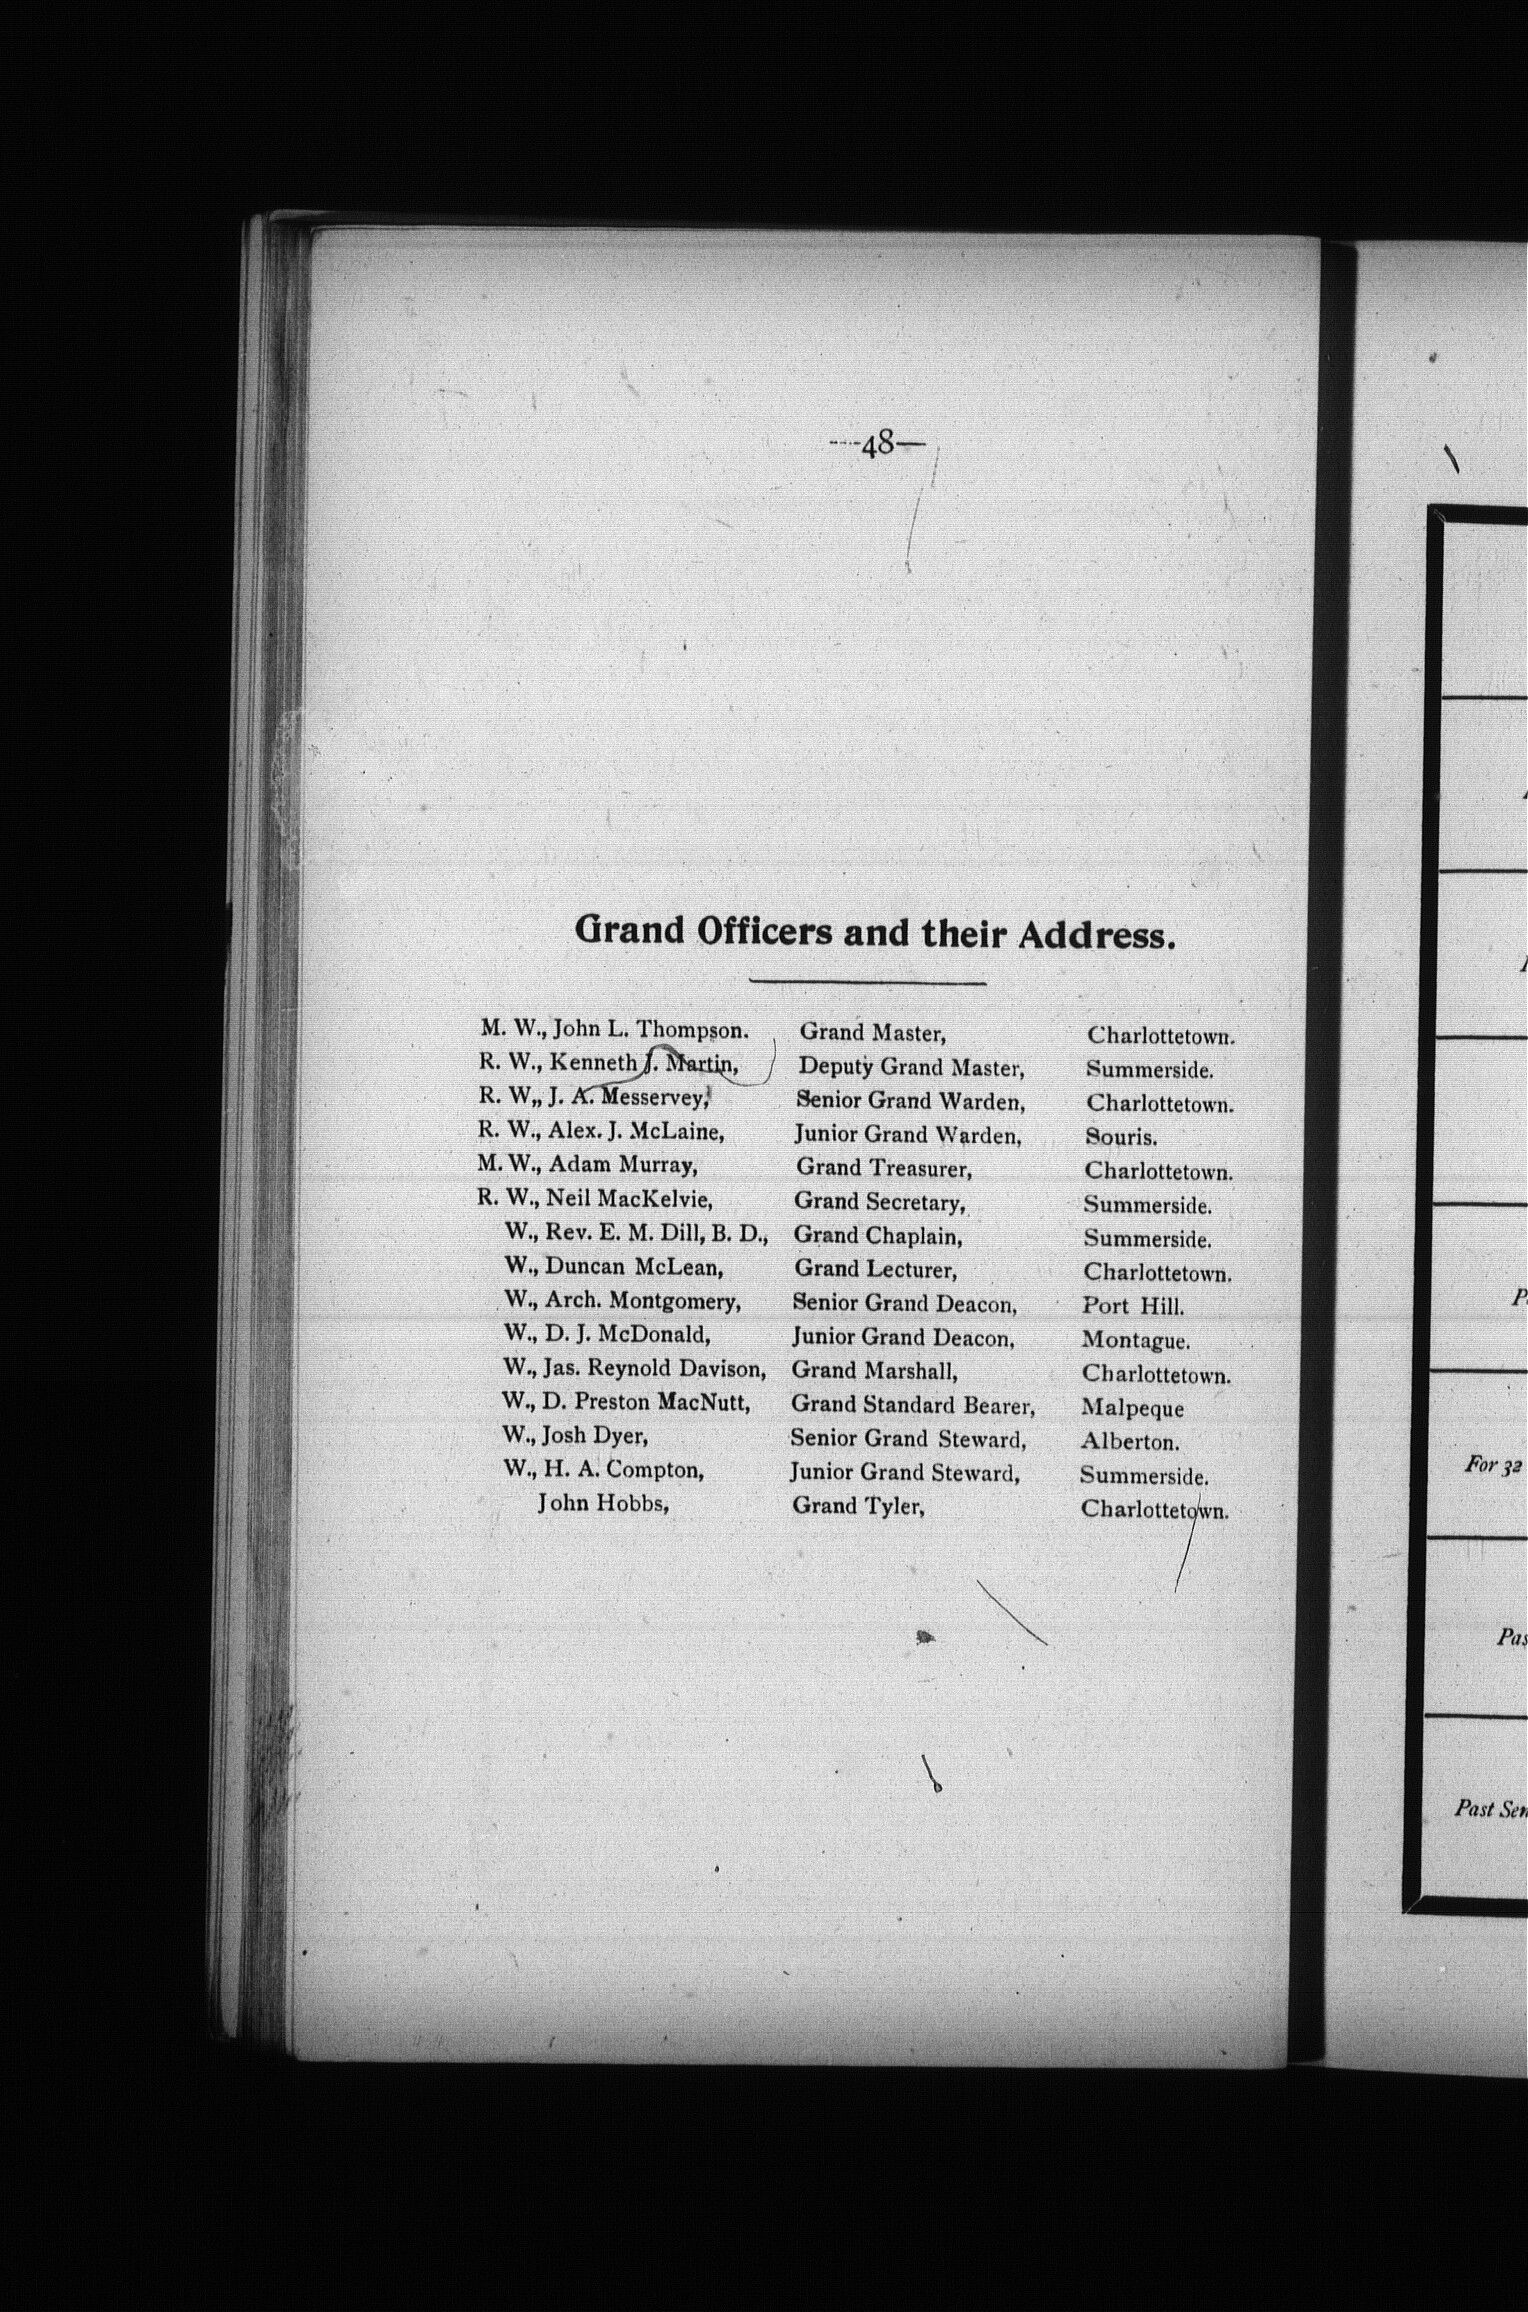 —48—
Grand Officers and their Address.
M. W., John L. Thompson. Grand Master, Charlottetown.
R. W., Kenneth J. Martin, Deputy Grand Master, Summerside.
R. W,, J. A. Messervey, Senior Grand Warden, Charlottetown.
R. W., Alex. J. McLaine, Junior Grand Warden, Souris.
M. W., Adam Murray, Grand Treasurer, Charlottetown.
R. W., Neil MacKelvie, Grand Secretary, Summerside.
W., Rev. E. M. Dill, B. D., Grand Chaplain, Summerside.
W., Duncan McLean, Grand Lecturer, Charlottetown.
W., Arch. Montgomery, Senior Grand Deacon, Port Hill.
W., D. J. McDonald, Junior Grand Deacon, Montague.
W., Jas. Reynold Davison, Grand Marshall, Charlottetown.
W., D. Preston MacNutt, Grand Standard Bearer, Malpeque
W., Josh Dyer, Senior Grand Steward, Alberton.
W., H. A. Compton, Junior Grand Steward, Summerside.
John Hobbs, Grand Tyler, Charlottetown.
For 32
Past